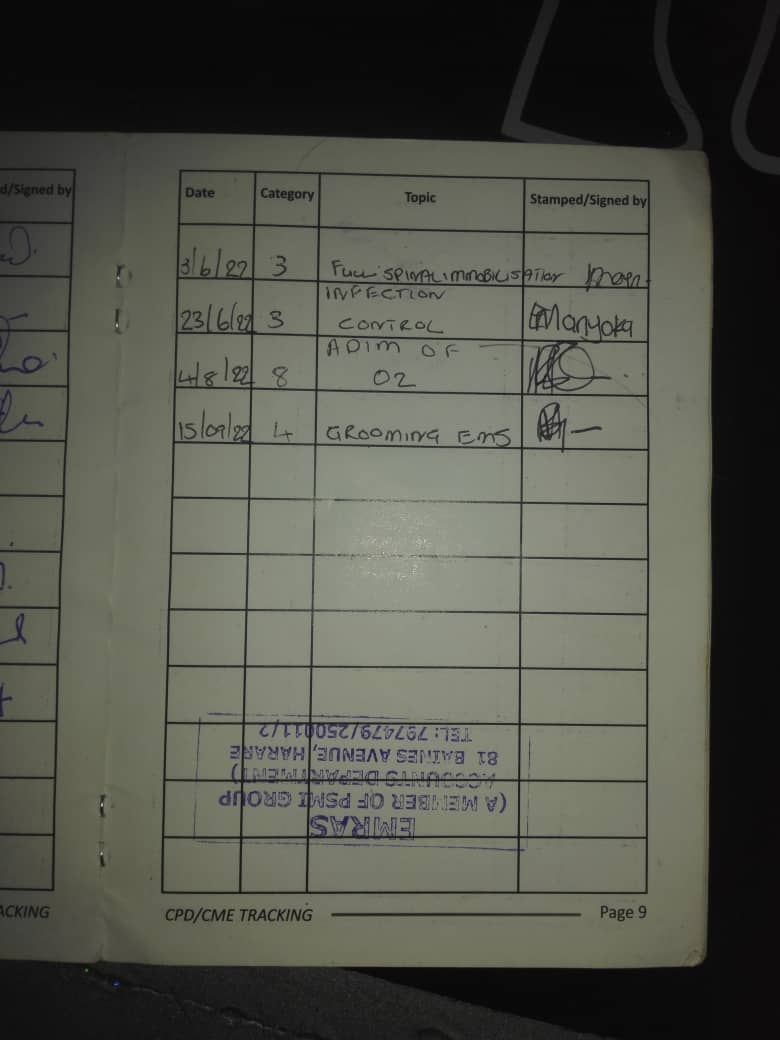 d/Signed by
Date Category Topic Stamped/Signed by
3/6/22 3 FULL SPINAL IMMOBILISATION
INFECTION
23/6/22 3 CONTROL EManyoka
ADIM OF
4/8/22 8 O2
15/09/22 4 GROOMING EMS
EMRAS
(A MEMBER OF PSMI GROUP
ACCOUNTS DEPARTMENT)
81 BAINES AVENUE, HARARE
TEL: 797479/250011/2
ACKING
CPD/CME TRACKING Page 9